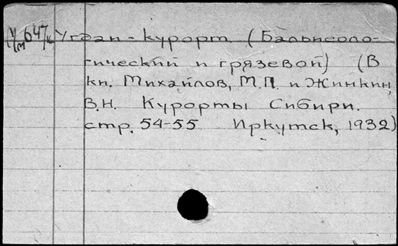 647 Угдан-курорт (Бальнеоло-
гический и грязевой) (В
кн. Михайлов, М.П. и Жинкин
В.Н. Курорты Сибири.
стр. 54-55 Иркутск, 1932)